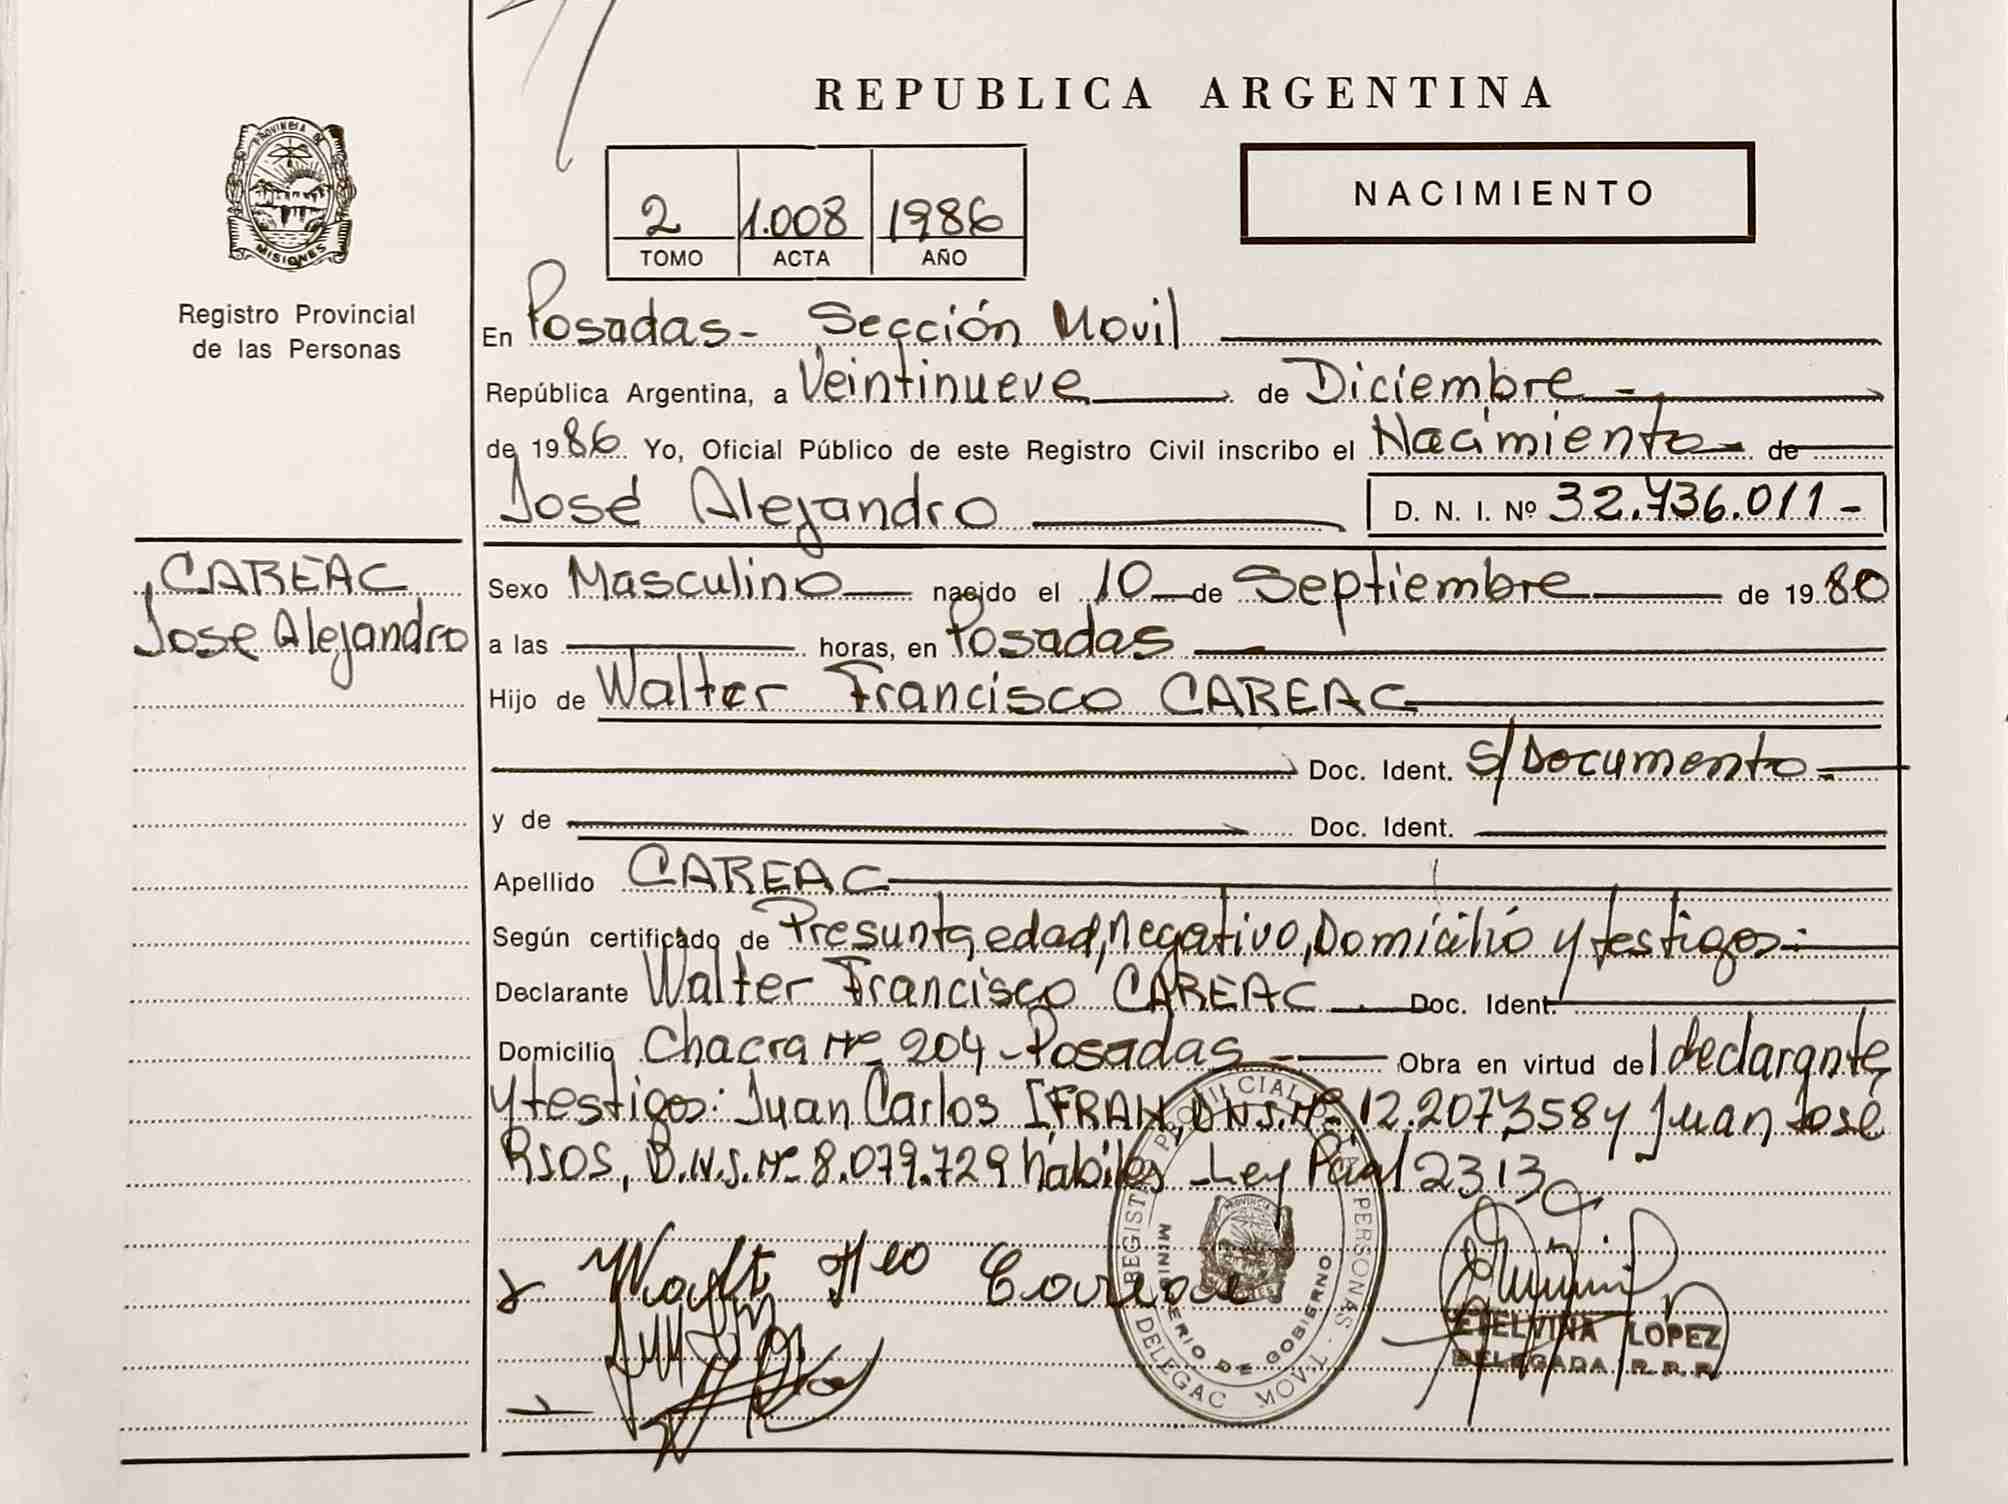 REPUBLICA ARGENTINA
PROVINCIA DE
MISIONES
Registro Provincial
de las Personas
2 1.008 1986
TOMO ACTA AÑO
NACIMIENTO
En Posadas- Sección Movil
República Argentina, a Veintinueve de Diciembre -
de 1986 Yo, Oficial Público de este Registro Civil inscribo el Nacimiento- de
José Alejandro
D. N. I. Nº 32.736.011-
CAREAC
Jose Alejandro
Sexo Masculino nacido el 10 de Septiembre de 1980
a las horas, en Posadas
Hijo de Walter Francisco CAREAC
Doc. Ident. S/Documento-
y de Doc. Ident.
Apellido CAREAC
Según certificado de Presunta edad, negativo, Domicilio y testigos:
Declarante Walter Francisco CAREAC Doc. Ident.
Domicilio Chacra Nº 204-Posadas- Obra en virtud del declarante,
y testigos: Juan Carlos IFRAN, D.N.I.Nº 12.207.358 y Juan José
RIOS, D.N.I.Nº 8.079.729 hábiles -Ley Pcial 2313
REGISTRO PROVINCIAL DE LAS PERSONAS
MINISTERIO DE GOBIERNO
DELEGAC MOVIL
ETELVINA LOPEZ
DELEGADA R.P.P.